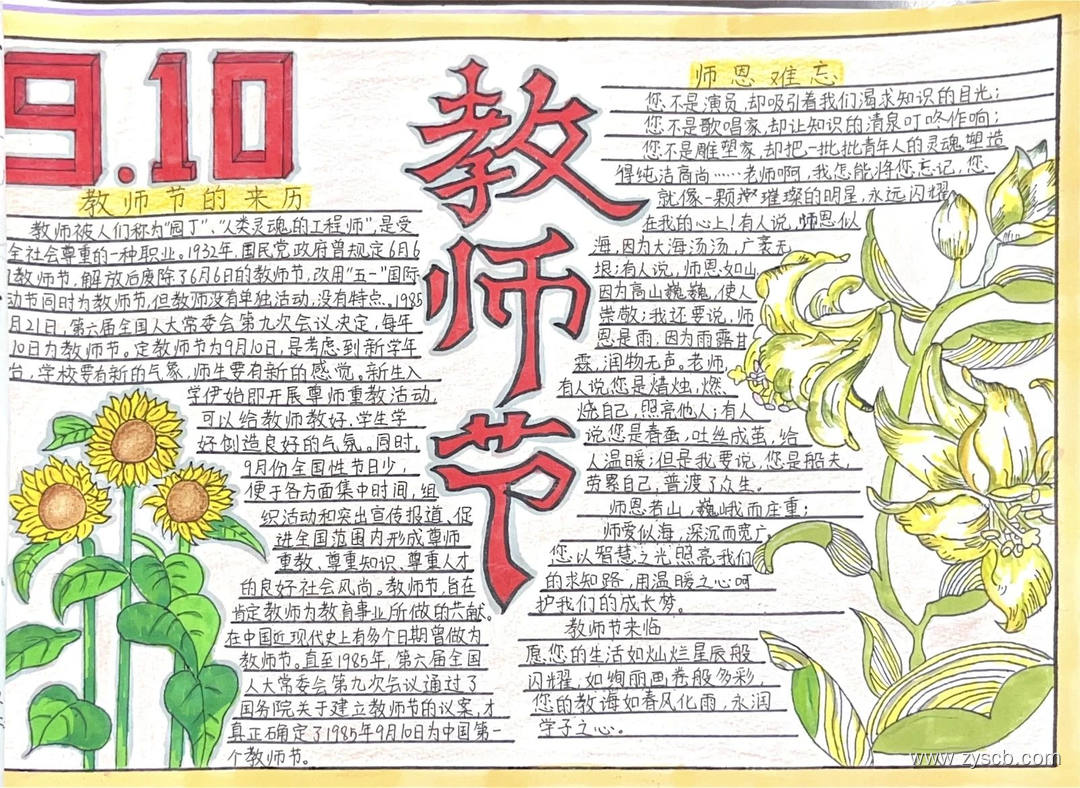 9.10
教师节的来历
教师被人们称为“园丁”、“人类灵魂的工程师”,是受
全社会尊重的一种职业。1932年,国民党政府曾规定6月6
教师节,解放后废除了6月6日的教师节,改用“五一”国际
动节同时为教师节,但教师没有单独活动,没有特点。1985
月21日,第六届全国人大常委会第九次会议决定,每年
10日为教师节。定教师节为9月10日,是考虑到新学年
台,学校要有新的气象,师生要有新的感觉。新生入
学伊始即开展尊师重教活动,
可以给教师教好,学生学
好创造良好的气氛。同时,
9月份全国性节日少,
便于各方面集中时间,组
织活动和突出宣传报道,促
进全国范围内形成尊师
重教、尊重知识、尊重人才
的良好社会风尚。教师节,旨在
肯定教师为教育事业所做的共献。
在中国近现代史上有多个日期曾做为
教师节。直至1985年,第六届全国
人大常委会第九次会议通过了
国务院关于建立教师节的议案,才
真正确定了1985年9月10日为中国第一
个教师节。
教师节
师恩难忘
您不是演员,却吸引着我们渴求知识的目光;
您不是歌唱家,却让知识的清泉叮咚作响;
您不是雕塑家,却把一批批青年人的灵魂塑造
得纯洁高尚……老师啊,我怎能将您忘记,您、
就像一颗璀璨的明星,永远闪耀
在我的心上!有人说,师恩似
海,因为大海汤汤,广袤无
垠;有人说,师恩如山
因为高山巍巍,使人
崇敬;我还要说,师
恩是雨,因为雨露甘
霖,润物无声。老师,
有人说您是蜡烛,燃
烧自己,照亮他人;有人
说您是春蚕,吐丝成茧,给
人温暖;但是我要说,您是船夫,
劳累自己,普渡了众生。
师恩若山,巍峨而庄重;
师爱似海,深沉而宽广
您以智慧之光照亮我们
的求知路,用温暖之心呵
护我们的成长梦。
教师节来临
愿您的生活如灿烂星辰般
闪耀,如绚丽画卷般多彩,
您的教诲如春风化雨,永润
学子之心。
www.zyscb.com